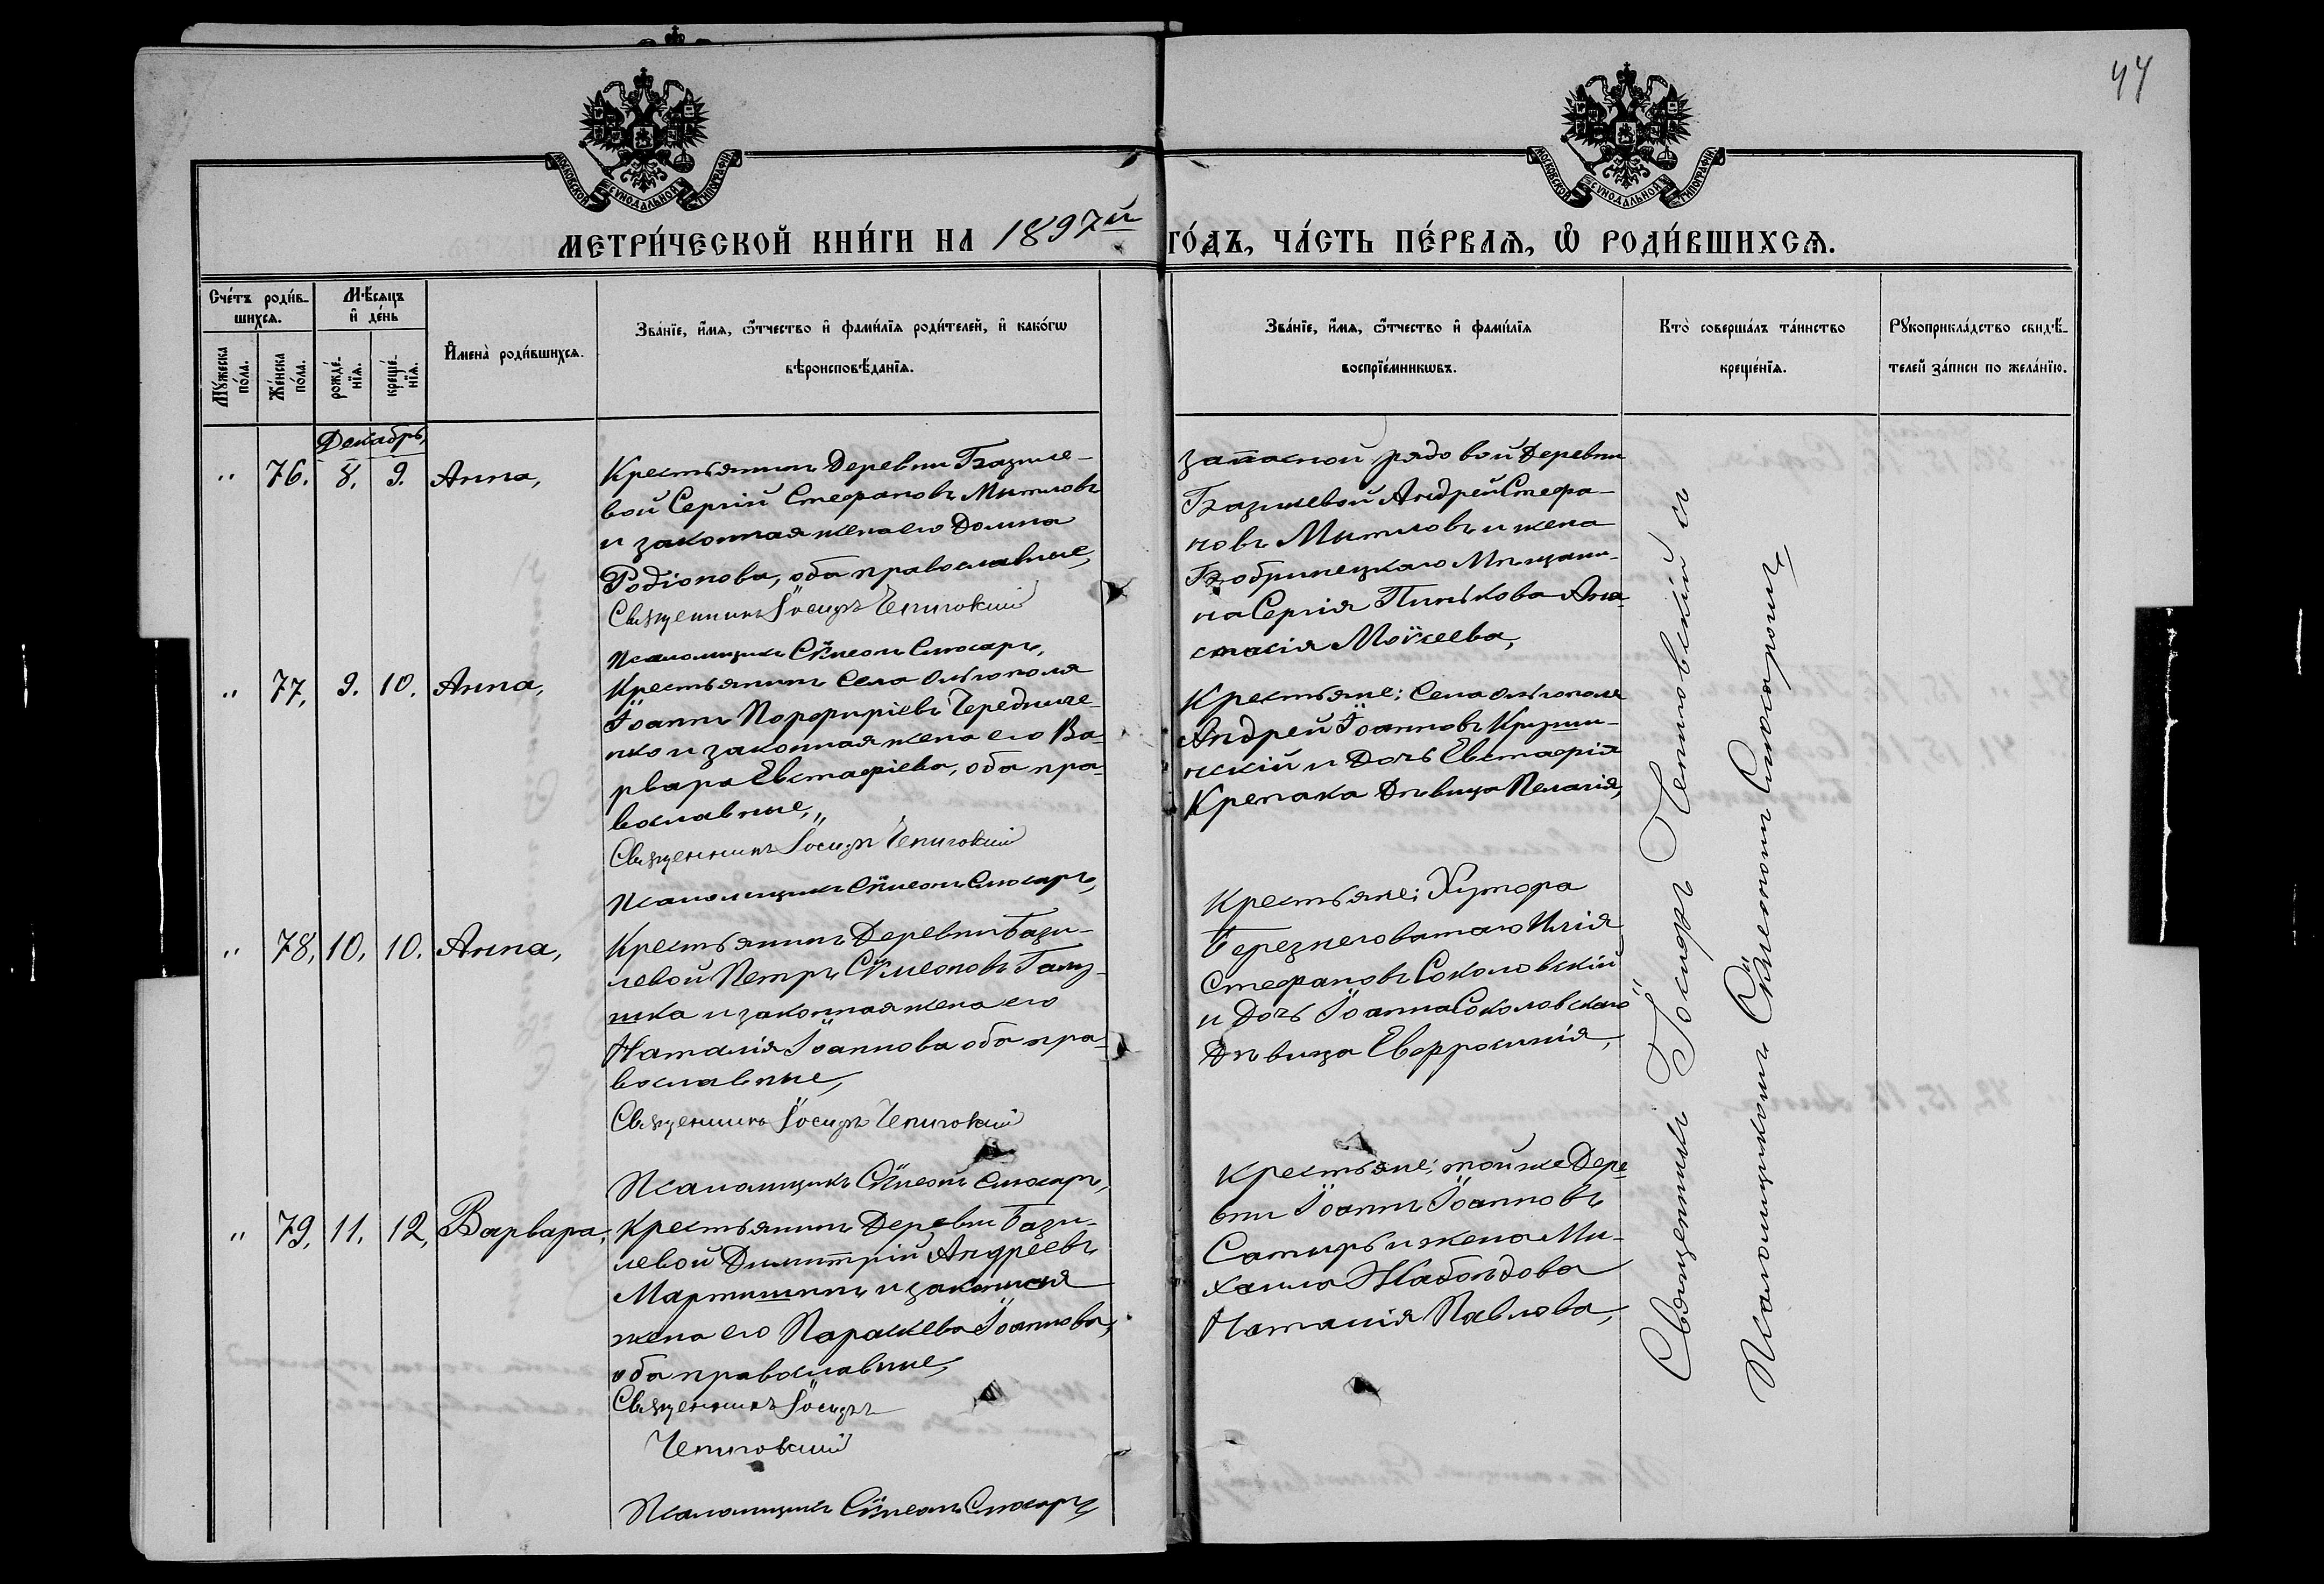 44
МОСКОВСКОЙ СѴНОДАЛЬНОЙ ТИПОГРАФІИ
МОСКОВСКОЙ СѴНОДАЛЬНОЙ ТИПОГРАФІИ
МЕТРИ́ЧЕСКОЙ КНИ́ГИ НА 1897й ГО́ДЪ, ЧА́СТЬ ПЕ́РВАѦ, Ѡ РОДИ́ВШИХСѦ.
Сче́тъ роди́в-
шихсѧ.
Мꙋжеска по́ла.
Же́нска по́ла.
Мѣ́сѧцъ
и҆ де́нь
рожде́-
нїѧ.
креще́-
нїѧ.
И҆мена̀ роди́вшихсѧ.
Зва́нїе, и҆́мѧ, ѻ҆́тчество и҆ фами́лїѧ роди́телей, и҆ како́гѡ
вѣроисповѣ́данїѧ.
Зва́нїе, и҆́мѧ, ѻ҆́тчество и҆ фами́лїѧ
воспрїе́мникѡвъ.
Кто̀ соверша́лъ та́инство
креще́нїѧ.
Рꙋкоприкла́дство свидѣ́-
телей за́писи по жела́нїю.
Декабрь,
" 76. 8. 9. Анна,
Крестьянинъ Деревни Базиле-
вой Сергій Стефановъ Мытловъ
и законная жена его Домна
Родіонова, оба православные,
Священникъ Іосифъ Чепиговскій
Псаломщикъ Сѵмеонъ Слюсарь,
запасной рядовой Деревни
Базилевой Андрей Стефа-
новъ Мытловъ и жена
Бобринецкаго Мѣщани-
на Сергія Пинькова Ана-
стасія Моѵсеева,
" 77. 9. 10. Анна,
Крестьянинъ Села Ольгополя
Іоаннъ Порфиріевъ Череднише-
нко и законная жена его Ва-
рвара Евстафіева, оба пра-
вославные,"
Священникъ Іосифъ Чепиговскій
Псаломщикъ Сѵмеонъ Слюсарь,
Крестьяне: Села Ольгополя
Андрей Іоанновъ Крушин-
скій и Дочь Евстафія
Крепака Дѣвица Пелагія,
" 78, 10. 10. Анна,
Крестьянинъ Деревни Бази-
левой Петръ Сѵмеоновъ Галу-
шка и законная жена его
Наталія Іоаннова оба пра-
вославные,
Священникъ Іосифъ Чепиговскій
Псаломщикъ Сѵмеонъ Слюсарь,
Крестьяне: Хутора
Березнеговатаго Илія
Стефановъ Соколовскій
и Дочь Іоанна Соколовскаго
Дѣвица Евфросинія,
" 79, 11. 12, Варвара,
Крестьянинъ Деревни Бази-
левой Димитрій Андреевъ
Мартишинъ и законная
жена его Параскева Іоаннова,
оба православные,
Священникъ Іосифъ
Чепиговскій
Псаломщикъ Сѵмеонъ Слюсарь,
Крестьяне: той же Дере-
вни Іоаннъ Іоанновъ
Сатырь и жена Ми-
хаила
Наталія Павлова,
Священникъ Іосифъ Чепиговскій съ
Псаломщикомъ Сѵмеономъ Слюсаромъ,